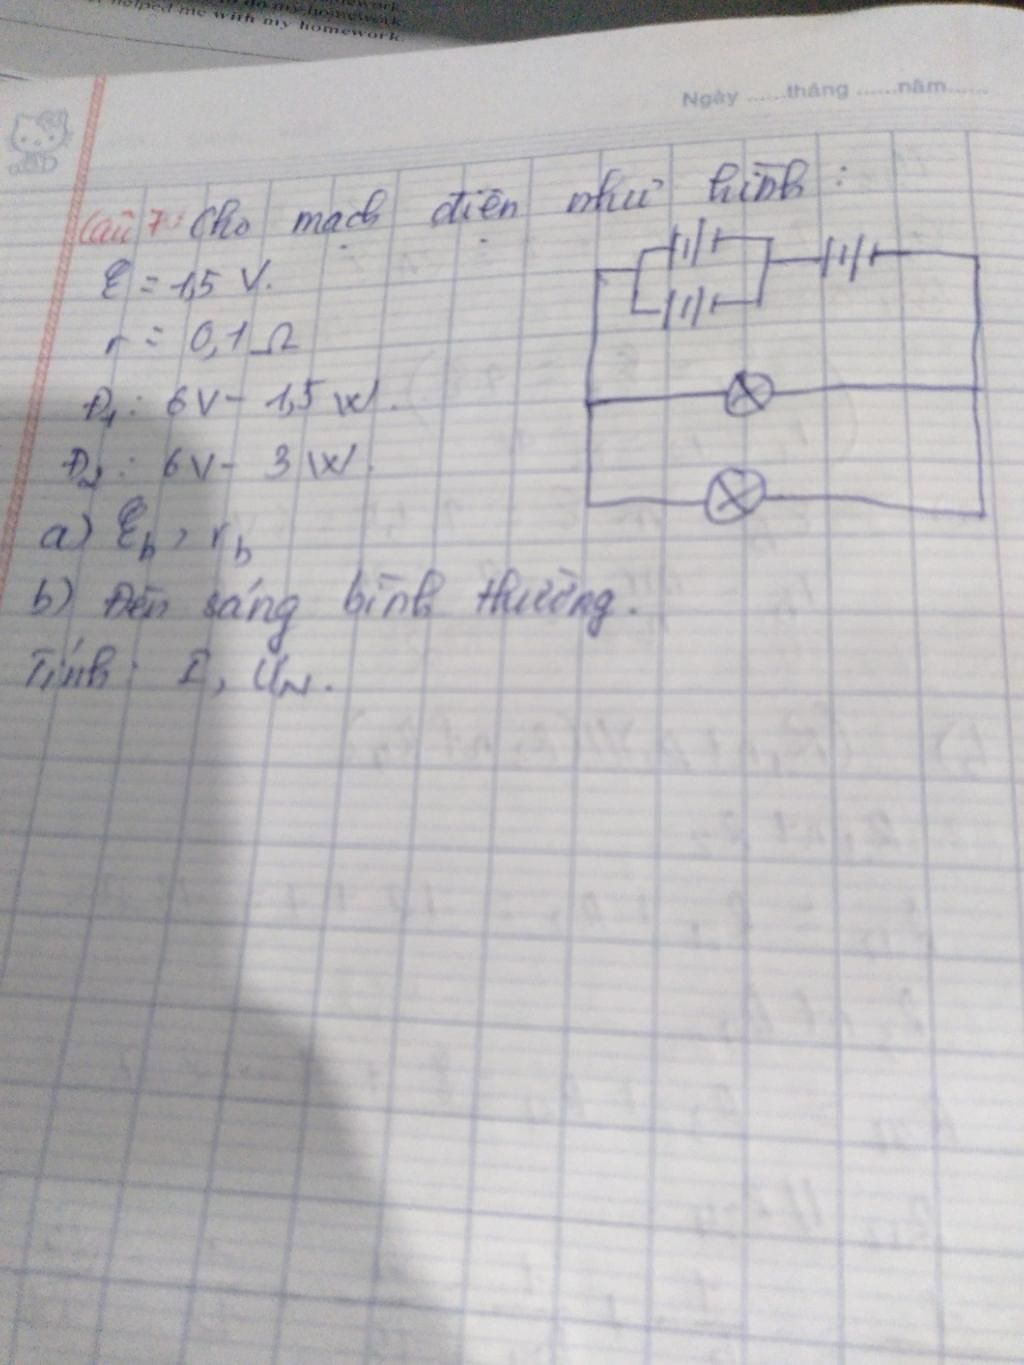 helped me with my homework.
Ngày ......tháng ......năm......
Câu 7: Cho mạch điện như hình:
ℰ = 1,5 V.
r = 0,1 Ω
Đ₁: 6V - 1,5 W.
Đ₂: 6V - 3 W.
a) ℰb, rb
b) Đèn sáng bình thường.
Tính: I, UN.